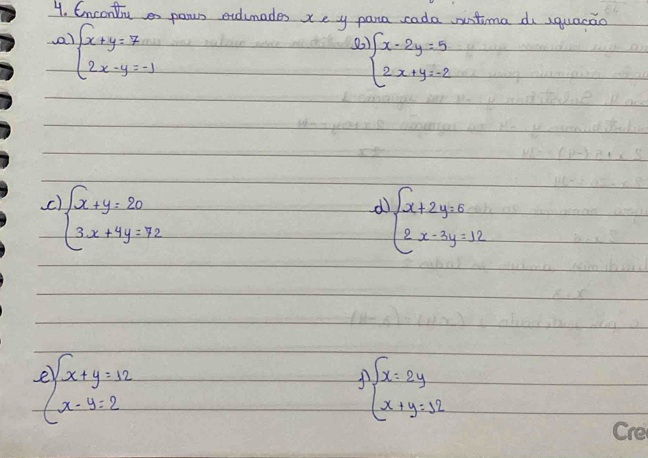 4. Encontre os pares ordenados x e y para cada sistema de equação
a) { x + y = 7
2x - y = -1
b) { x - 2y = 5
2x + y = -2
c) { x + y = 20
3x + 4y = 72
d) { x + 2y = 6
2x - 3y = 12
e) { x + y = 12
x - y = 2
f) { x = 2y
x + y = 12
Cre